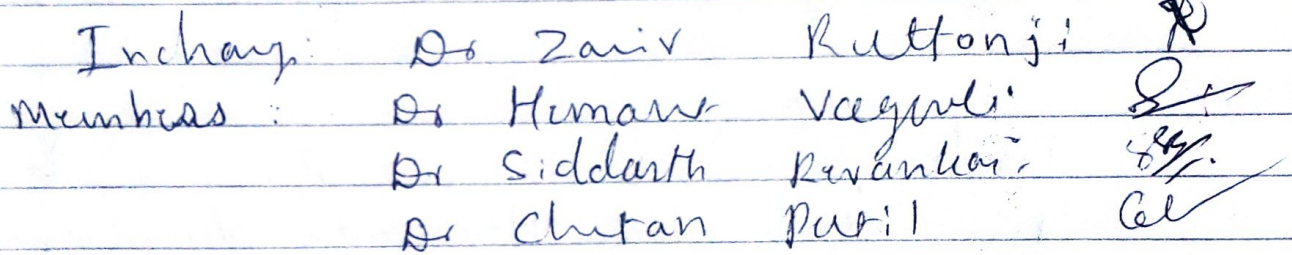 Incharge: Dr Zaniv Ruttonji
Members: Dr Hemant Vagarali
Dr Siddarth Revankar
Dr Chetan Patil